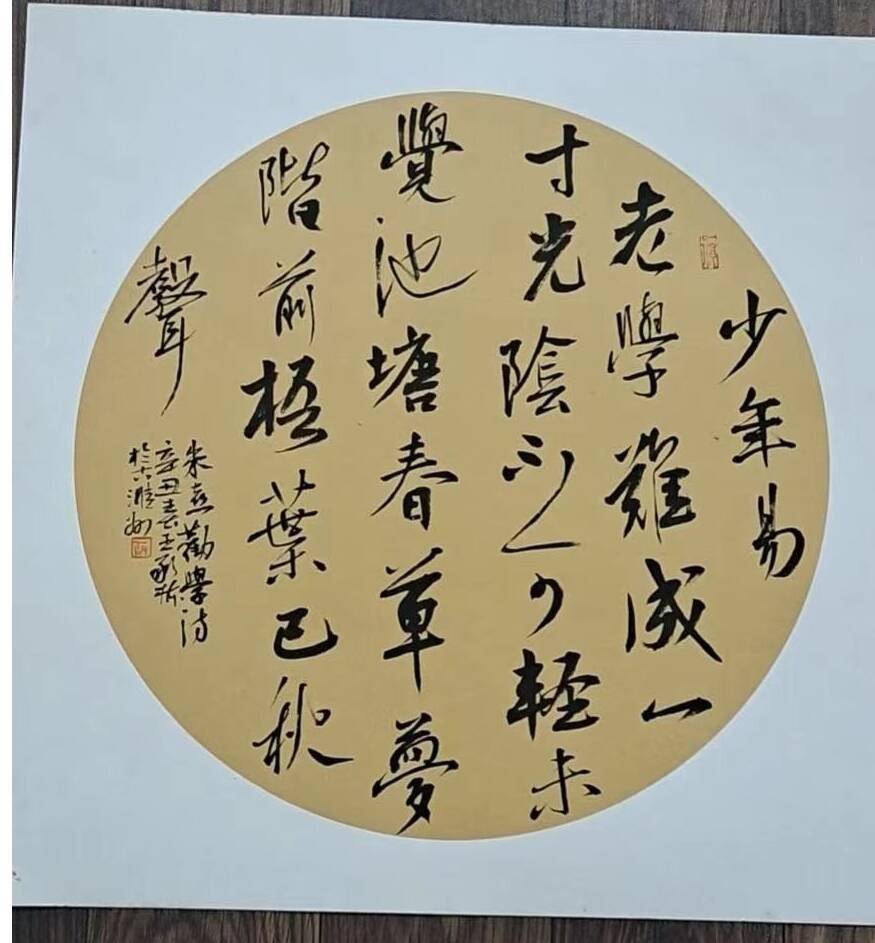 少年易
老學難成一
寸光陰不可輕未
覺池塘春草夢
階前梧葉已秋
聲
朱熹勸學詩
辛丑
於